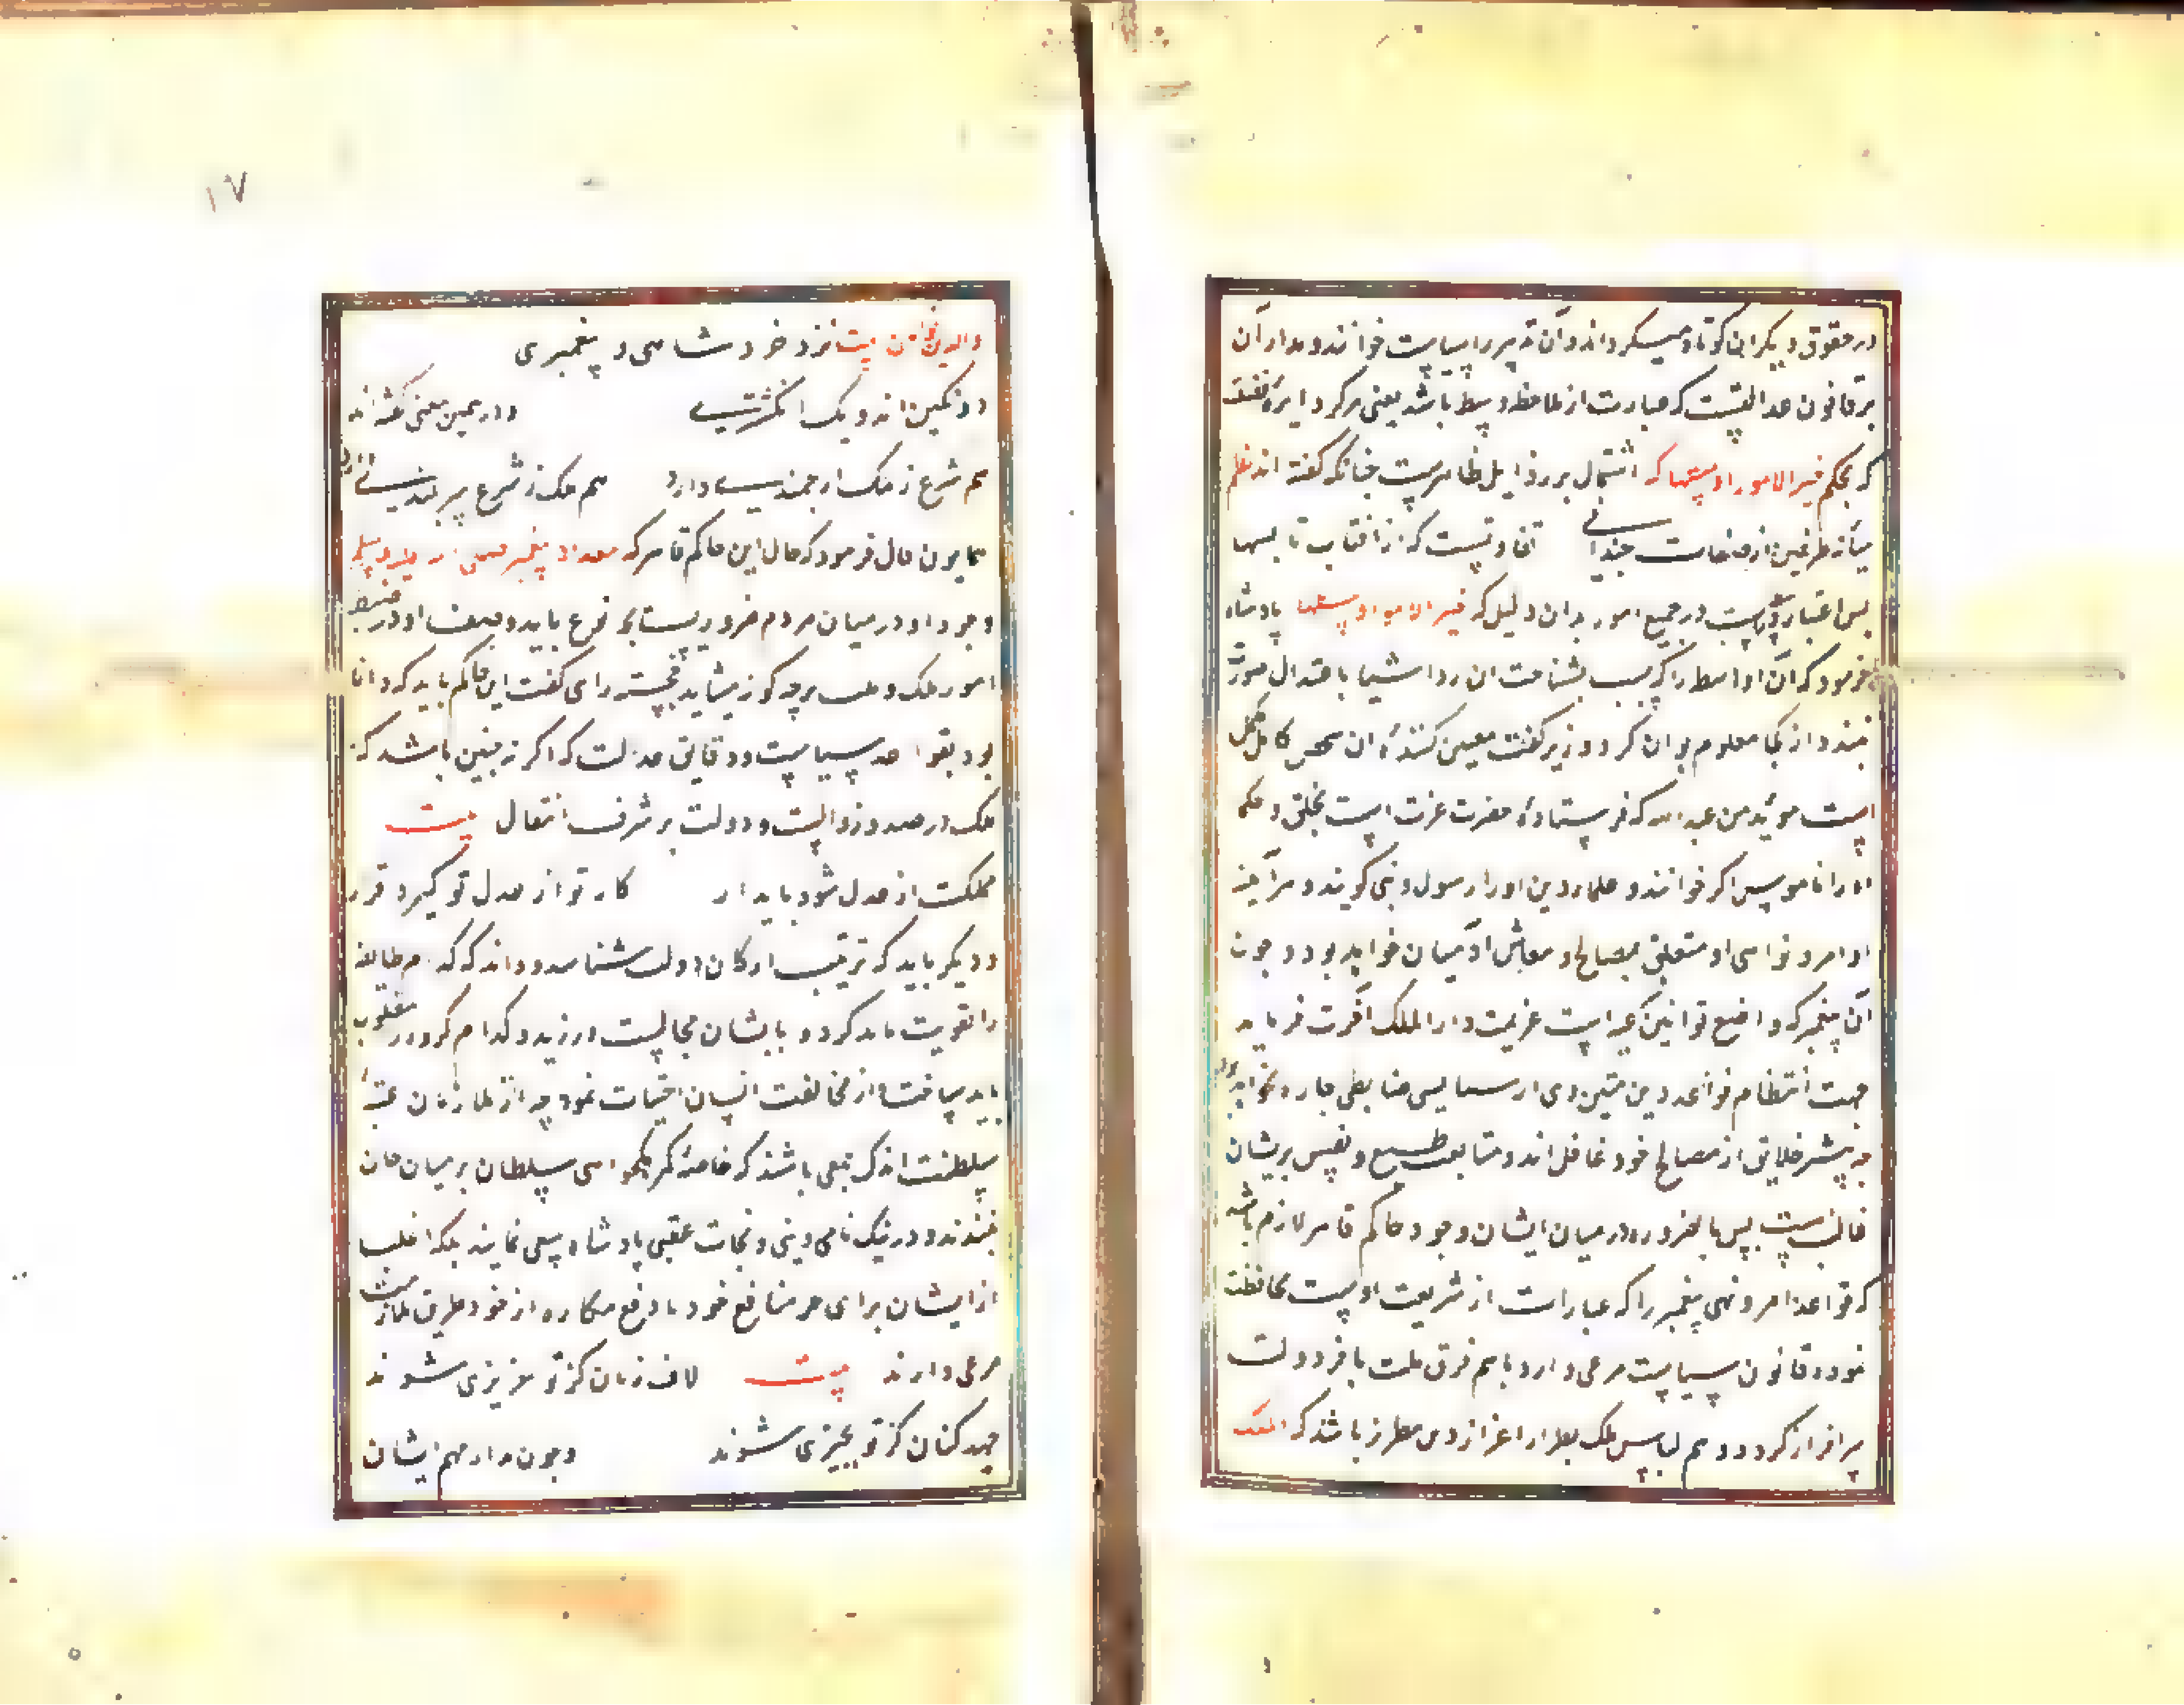 در حقوق دیگران کوتاه میگرداند و آن تدبیر را سیاست خوانند و مدار آن
بر قانون عدالتست که عبارت از ملاحظه وسط باشد یعنی مرکز دایره فضیلت
که بحکم خیر الامور اوسطها که اشتمال بر رذایل ظاهرست چنانکه گفته اند نظم
میانه طرفین از صفات چندانی تفاوتیست که از آفتاب تا بسها
پس اعتبار وسط است در جمیع امور بدان دلیل که خیر الامور اوسطها پادشاه
فرمود که آن اواسط را که بسبب شناخت ان رداشیا باعتدال صورت
بندد از کجا معلوم توان کرد وزیر گفت معین کننده ان شخص کامل مکمل
است مؤید من عند الله که فرستاده حضرت عزت است بخلق و حکما
او را ناموس اکبر خوانند و علماء دین او را رسول و نبی گویند و هرآینه
اوامر و نواهی او متعلق بمصالح و معاش آدمیان خواهد بود و چون
آن پیغمبر که واضع قوانین است عزیمت دار الملک آخرت فرماید
جهت انتظام قواعد دین متین وی از سیاسی ضابطی چاره نخواهد بود
چه بیشتر خلایق از مصالح خود غافل اند و متابعت طبع و نفس بریشان
غالبست پس بالضروره در میان ایشان وجود حاکم قاهر لازم باشد
که قواعد امر و نهی پیغمبر را که عبارات از شریعت اوست محافظت
نموده قانون سیاست مرعی دارد تا هم فرق ملت بافر دولت
سرافراز گردد و هم لباس ملک بطراز اعزاز دین مطرز باشد که الملک
والدین توأمان بیت نزد خرد شاهی و پیغمبری
دو نگین اند و یک انگشتری و در همین معنی گفته اند
هم شرع ز ملک ارجمندی دارد هم ملک ز شرع سربلندی
همایون فال فرمود که حال این حاکم قاهر که بعد از پیغمبر صلی الله علیه وسلم
وجود او در میان مردم ضروریست بچه نوع باید و صفت او در ضبط
امور ملک و ملت بر چه گونه میشاید خجسته رای گفت این حاکم باید که دانا
بود بقواعد سیاست و دقایق عدالت که اگر نه چنین باشد
ملک در صدد زوالست و دولت بر شرف انتقال بیت
مملکت از عدل شود پایدار کار تو از عدل تو گیرد قرار
و دیگر باید که ترتیب ارکان دولت شناسد و داند که کدام طایفه
را تقویت باید کرد و بایشان مجالست ورزید و کدام گروه را مغلوب
باید ساخت و از مخالفت ایشان اجتناب نمود چه از ملازمان عتبه
سلطنت اندک جمعی باشند که خاصه کمر نیکو خواهی سلطان بر میان جان
بندند و در نیک نامی دینی و نجات عقبی پادشاه سعی نمایند بلکه اغلب
از ایشان برای جر منافع خود یا دفع مکاره از خود طریق ملازمت
مرعی دارند بیت لاف زنان کز تو عزیزی شوند
جهد کنان کز تو بچیزی شوند و چون مدار مهم ایشان
۱۷